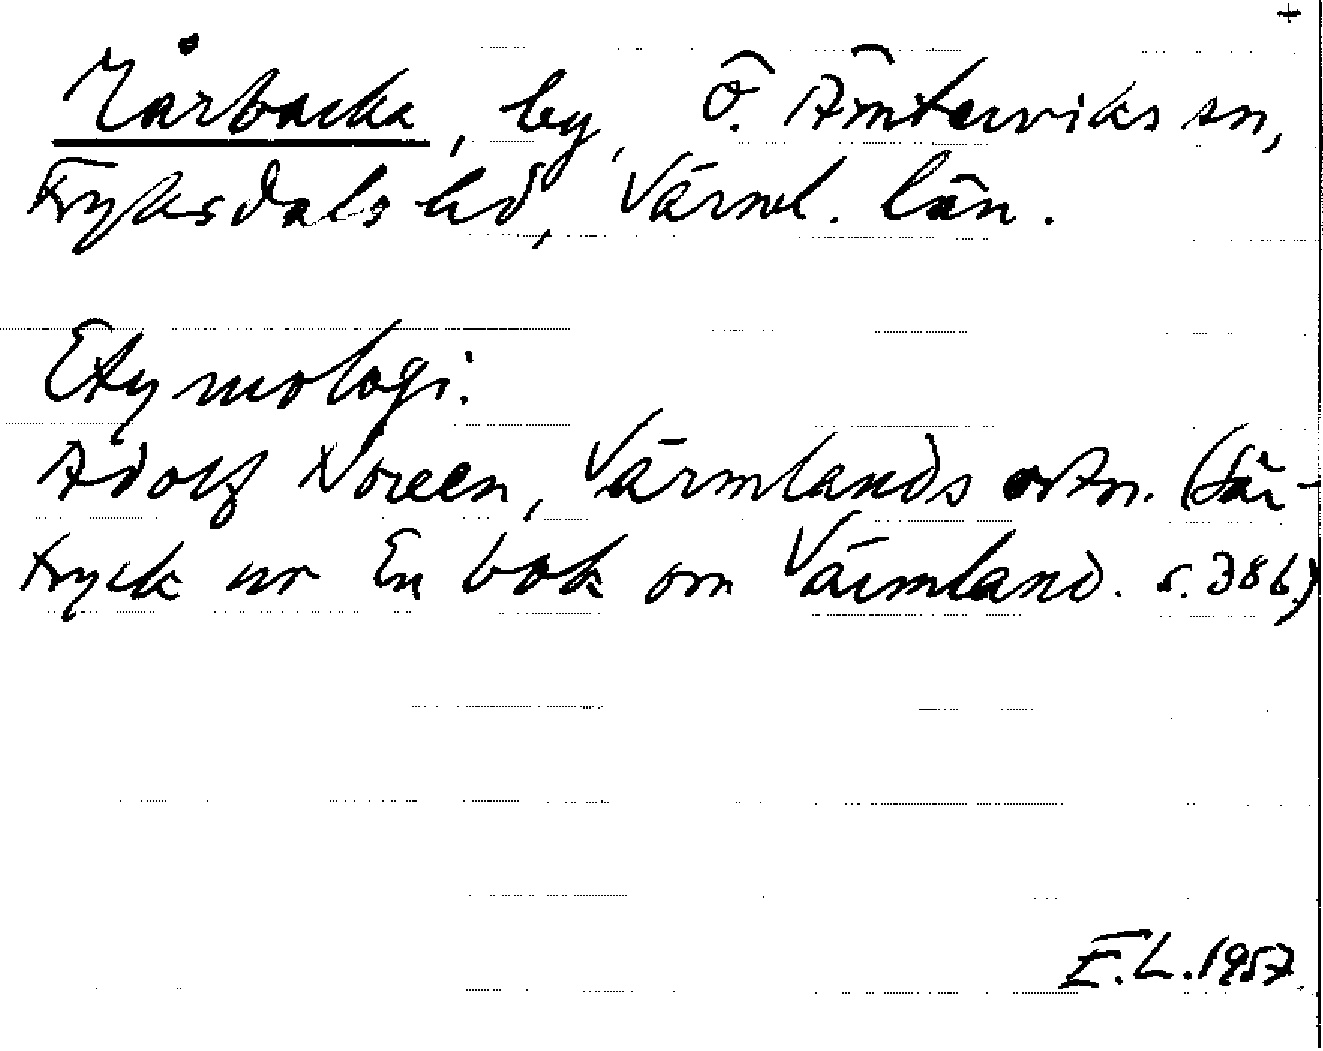 +
Mårbacka, by, Ö. Ämterviks sn,
Fryksdals hd, Värml. län.
Etymologi:
Adolf Noreen, Värmlands ortn. (Sär-
tryck ur En bok om Värmland. s. 386)
E.L. 1957.